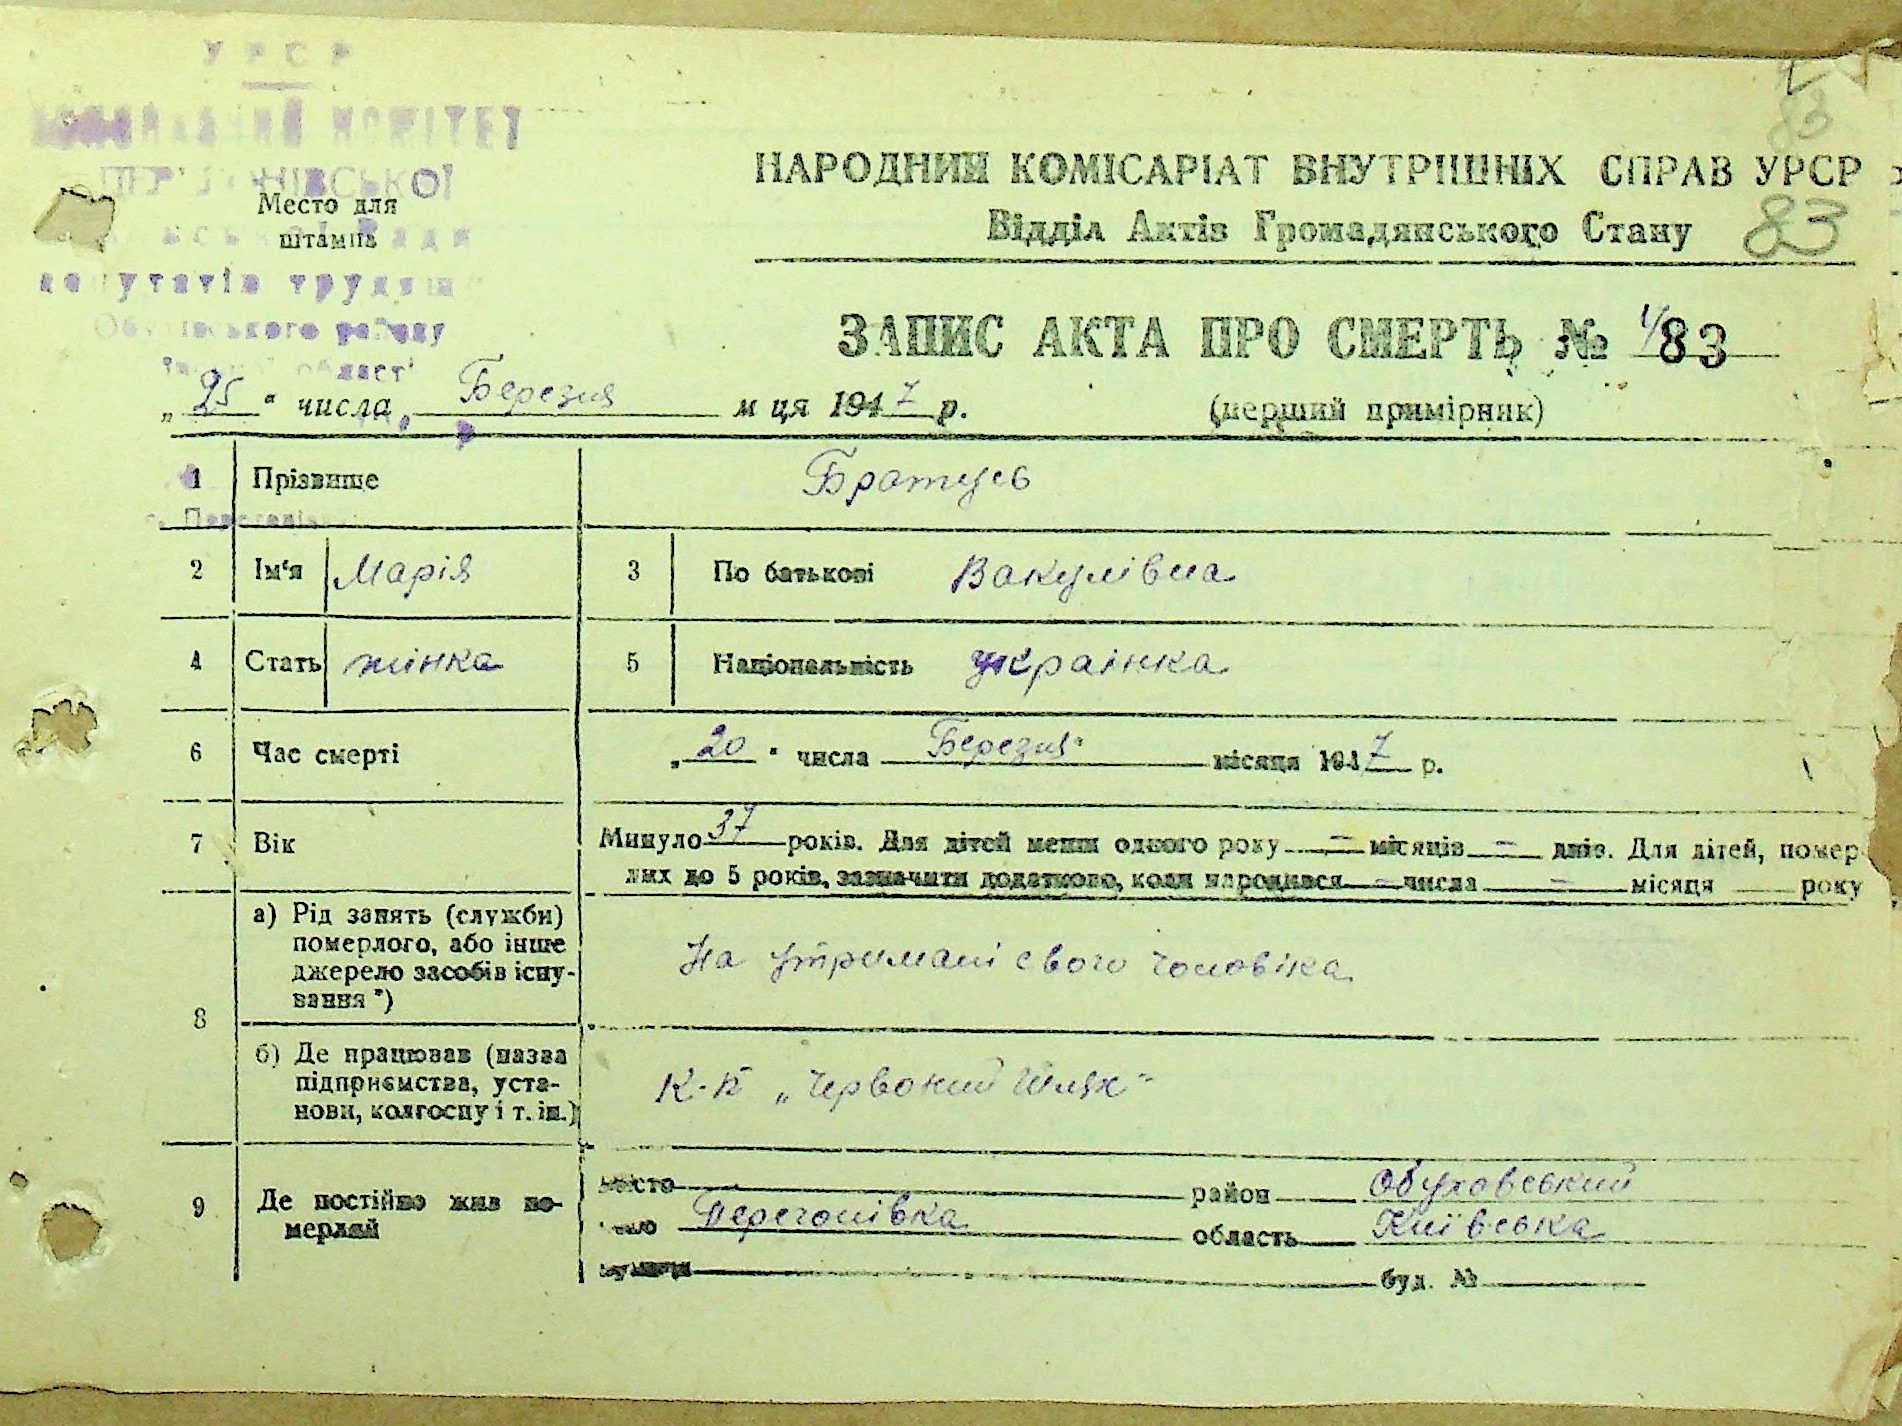 УРСР
КОМІТЕТ
Место для
штампа
депутатів трудящ
району
83
83
НАРОДНИЙ КОМІСАРІАТ ВНУТРІШНІХ СПРАВ УРСР
Відділ Актів Громадянського Стану
ЗАПИС АКТА ПРО СМЕРТЬ № 83
„25“ числа Березня м ця 1947 р.
(перший примірник)
1 Прізвище Братусь
2 Ім‘я Марія 3 По батькові Вакулівна
4 Стать жінка 5 Національність українка
6 Час смерті „20“ числа Березня місяця 1947 р.
7 Вік Минуло 37 років. Для дітей менш одного року – місяців – днів. Для дітей, помер-
лих до 5 років, зазначити додатково, коли народився – числа – місяця року
8 а) Рід занять (служби)
померлого, або інше
джерело засобів існу-
вання *)
На утримані свого чоловіка
б) Де працював (назва
підприємства, уста-
нови, колгоспу і т. ін.)
К-п „Червоний Шлях“
9 Де постійно жив по-
мерлий
місто район Обуховський
село Перегонівка область Київська
вулиця буд. №